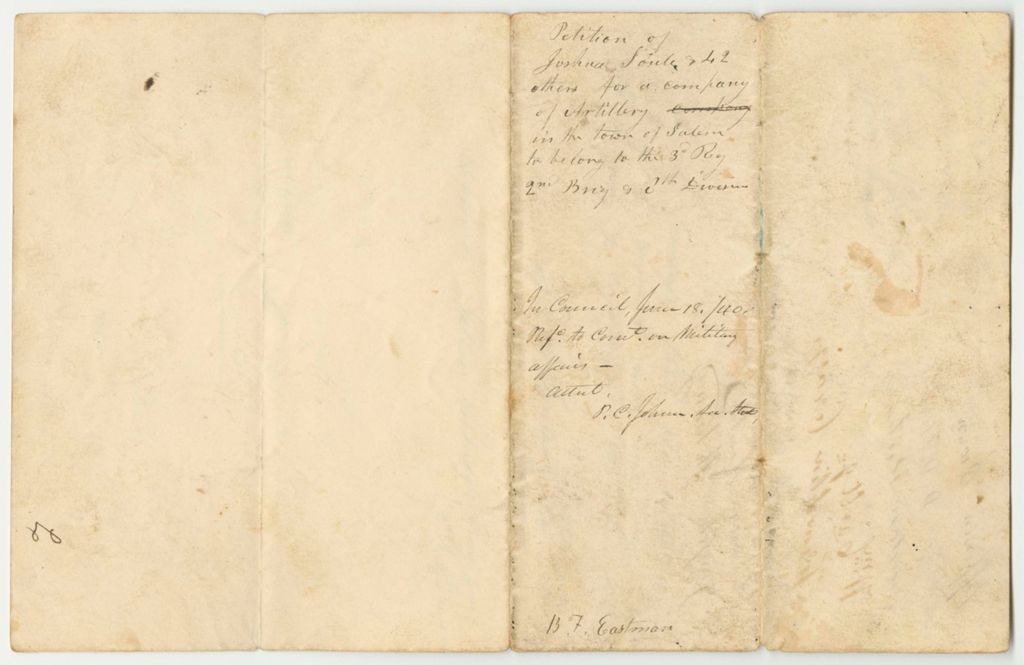 Petition of
Joshua Soule & 42
others for a company
of Artillery company
in the town of Salem
to belong to the 3d Reg
2nd Brig & 8th Division
In Council, June 18. /40.
Refd. to Comte. on Military
affairs —
Attest,
P. C. Johnson. Sec.
B F. Eastman